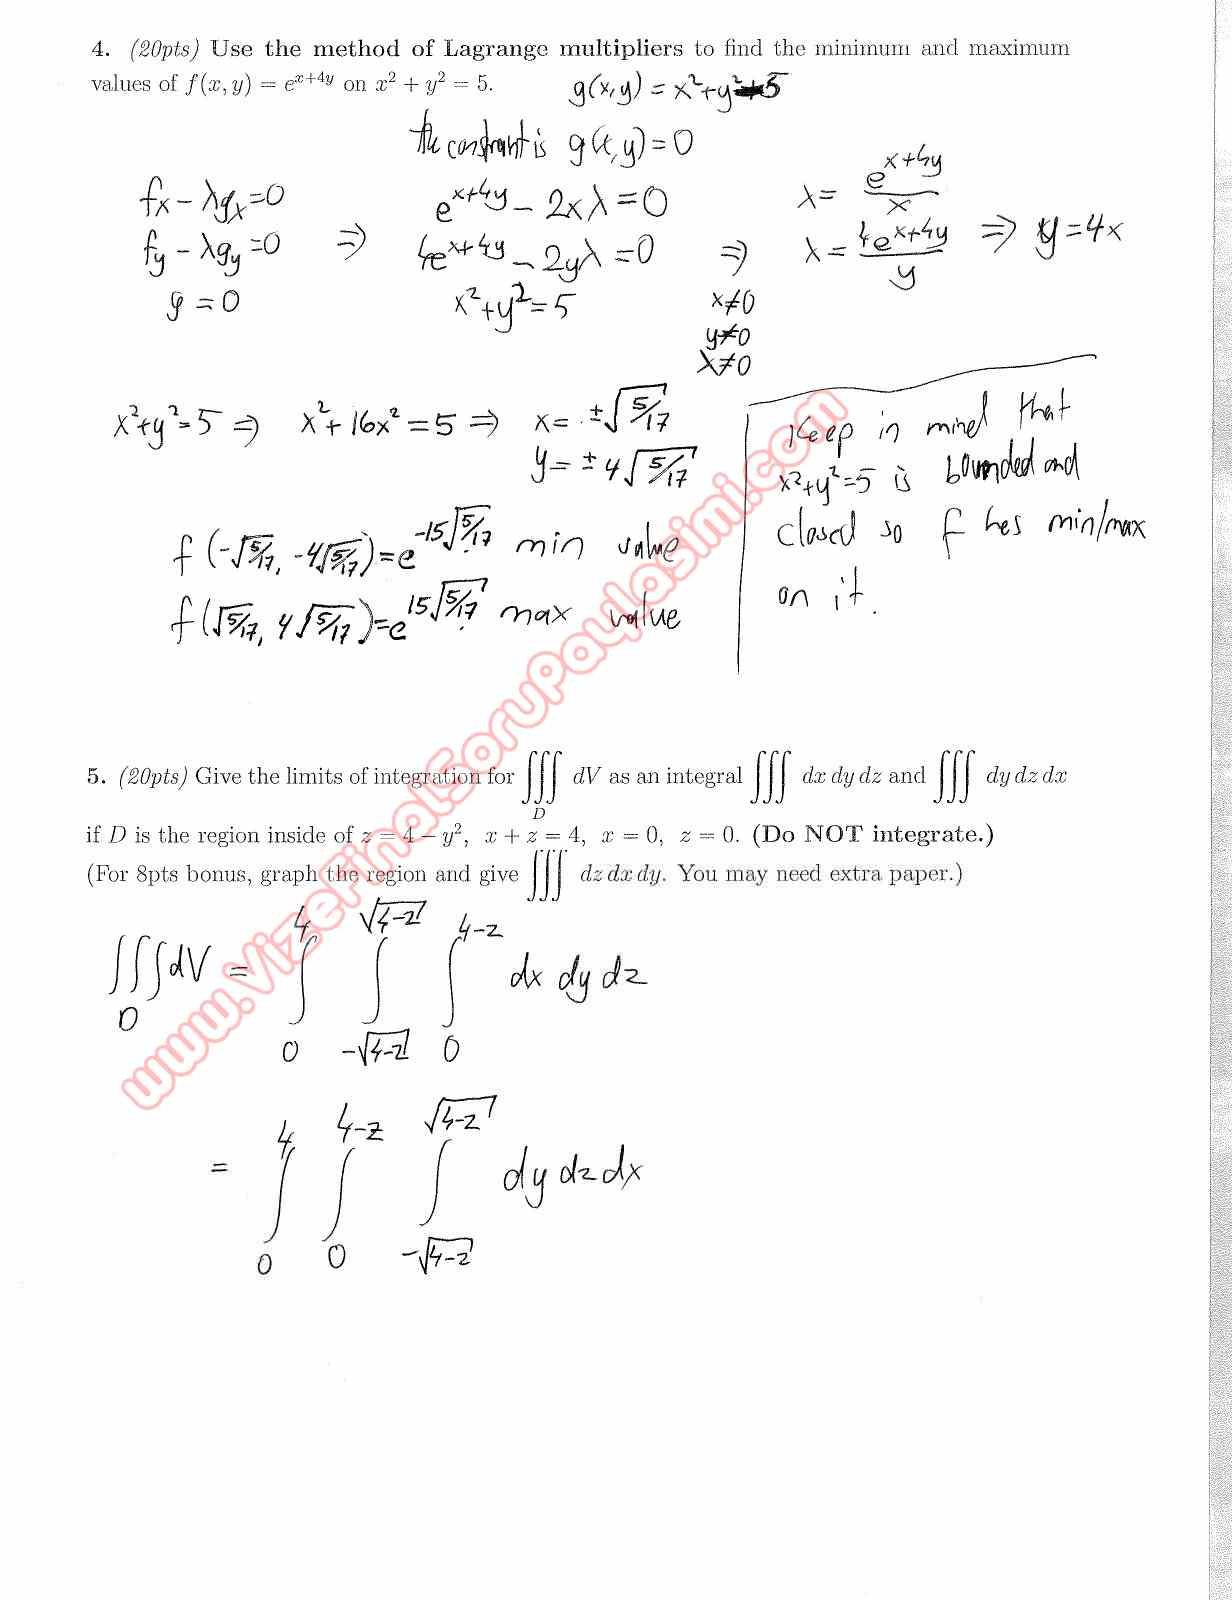 4. (20pts) Use the method of Lagrange multipliers to find the minimum and maximum
values of f(x, y) = e^{x+4y} on x² + y² = 5.
g(x,y) = x²+y²-5
the constraint is g(x,y)=0
fx - λgx = 0
fy - λgy = 0
g = 0
⇒
e^{x+4y} - 2xλ = 0
4e^{x+4y} - 2yλ = 0
x²+y² = 5
⇒
x≠0
y≠0
λ≠0
λ = e^{x+4y}/x
λ = 4e^{x+4y}/y
⇒ y = 4x
x²+y²=5 ⇒ x²+16x² = 5 ⇒ x = ±√(5/17)
y = ±4√(5/17)
f(-√(5/17), -4√(5/17)) = e^{-15√(5/17)} min value
f(√(5/17), 4√(5/17)) = e^{15√(5/17)} max value
Keep in mind that
x²+y²=5 is bounded and
closed so f has min/max
on it.
5. (20pts) Give the limits of integration for ∭_D dV as an integral ∭ dx dy dz and ∭ dy dz dx
if D is the region inside of z = 4 − y², x + z = 4, x = 0, z = 0. (Do NOT integrate.)
(For 8pts bonus, graph the region and give ∭ dz dx dy. You may need extra paper.)
∭_D dV = ∫_0^4 ∫_{-√(4-z)}^{√(4-z)} ∫_0^{4-z} dx dy dz
= ∫_0^4 ∫_0^{4-z} ∫_{-√(4-z)}^{√(4-z)} dy dz dx
www.VizeFinalSoruPaylasimi.com